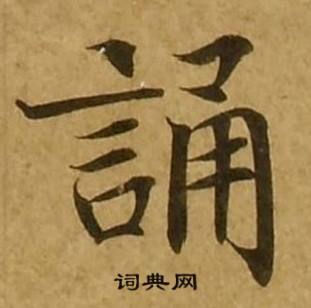 誦
词典网